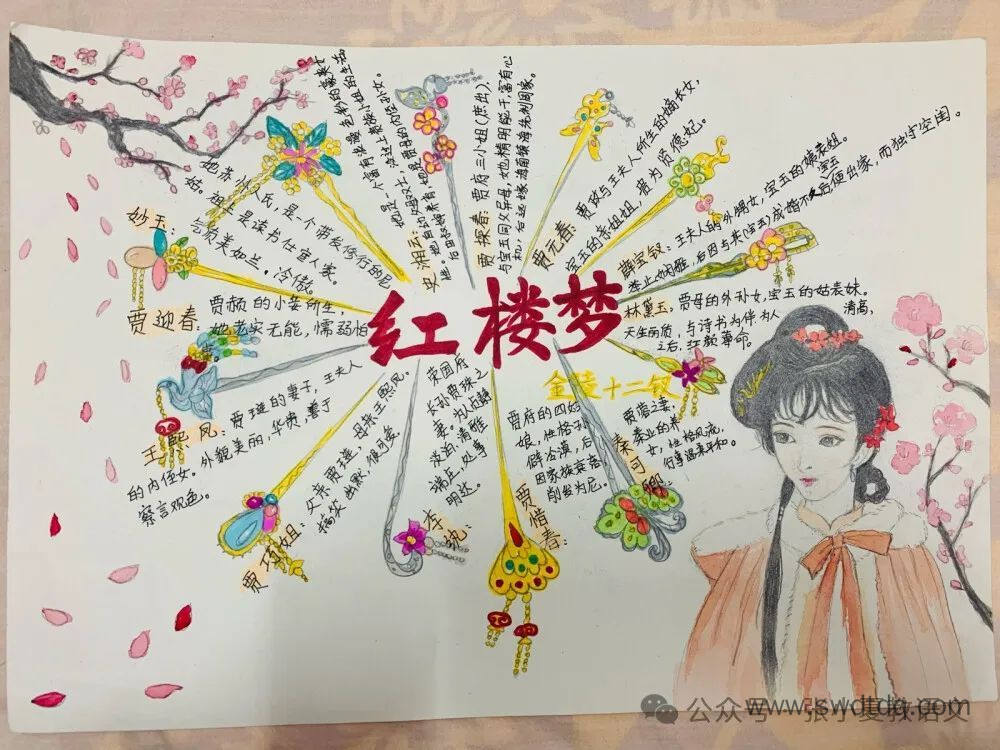 红楼梦
金陵十二钗
妙玉：
她苏州人氏，是一个带发修行的尼
姑。祖上是读书仕宦人家。
气质美如兰，冷傲。
贾迎春：
贾赦的小妾所生，
她老实无能，懦弱怕
王熙凤：
贾琏的妻子，王夫人
的内侄女。外貌美丽，华贵，善于
察言观色。
贾巧姐：
父亲贾琏，母亲王熙凤。
搞笑，幽默，很可爱。
李纨：
荣国府
长孙贾珠之
妻。为人贞静
淡泊、清雅
端庄、处事
明达。
贾惜春：
贾府的四姑
娘，性格孤
僻冷漠，后
因家族衰落
削发为尼。
秦可卿：
贾蓉之妻，
秦业的养
女，性格风流，
行事温柔平和。
林黛玉，贾母的外孙女，宝玉的姑表妹。
天生丽质，与诗书为伴为人清高，
之后，红颜薄命。
薛宝钗：王夫人的外甥女，宝玉的姨表姐。
举止娴雅，后因与其(宝玉)成婚不久后宝玉便出家，而独守空闺。
贾元春：贾政与王夫人所生的嫡长女，
宝玉的亲姐姐，贵为贤德妃。
贾探春：贾府三小姐(庶出)，
与宝玉同父异母，她精明能干，富有心
机，
史湘云：
她是一个富有浪漫色彩的豪爽女
公众号
张小夏教语文
www.swdtdq.com